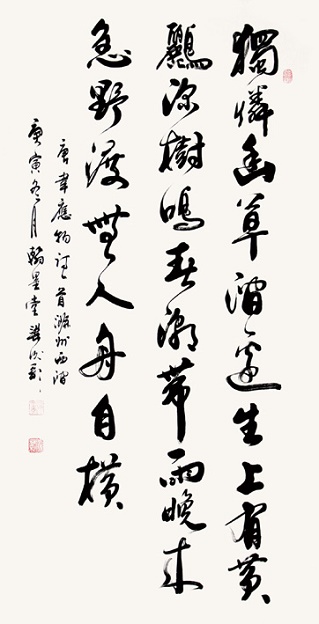 獨憐幽草澗邊生上有黃
鸝深樹鳴春潮帶雨晚來
急野渡無人舟自橫
唐韋應物詩一首滁州西澗
庚寅冬月翰墨堂